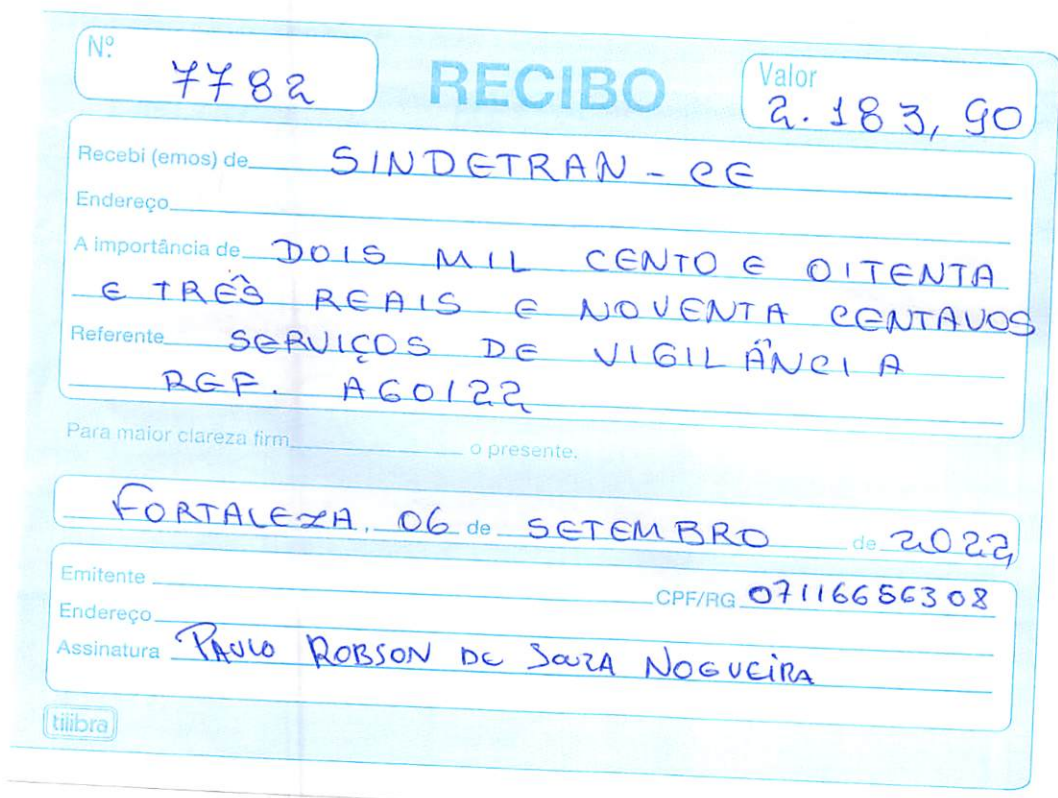 Nº 7782 RECIBO Valor 2.183,90
Recebi (emos) de SINDETRAN - CE
Endereço
A importância de DOIS MIL CENTO E OITENTA
E TRÊS REAIS E NOVENTA CENTAVOS
Referente SERVIÇOS DE VIGILÂNCIA
REF. AGO/22
Para maior clareza firm o presente.
FORTALEZA, 06 de SETEMBRO de 2022
Emitente CPF/RG 07116656308
Endereço
Assinatura PAULO ROBSON DE SOUZA NOGUEIRA
tilibra